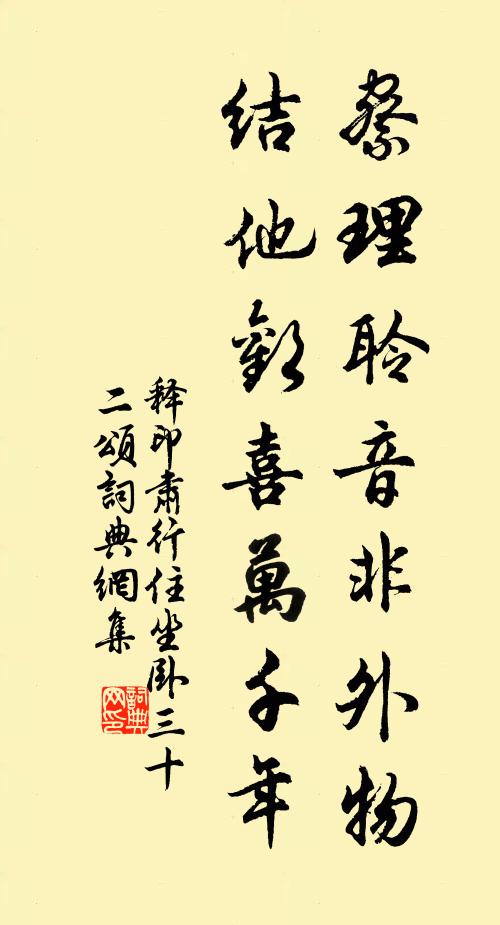 察理聆音非外物
結他歡喜萬千年
释印肅行住坐卧三十
二頌詞典網集
詞典网印